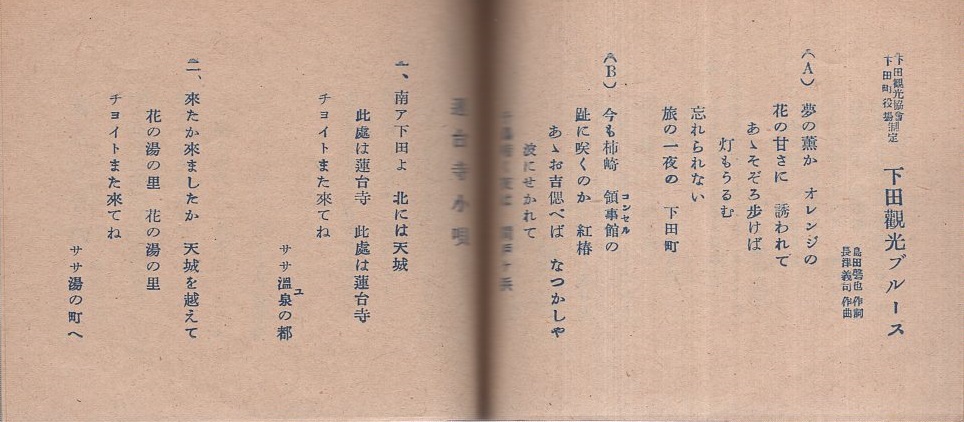 下田觀光協會
下田町役場制定
下田觀光ブルース
島田磬也 作詞
長津義司 作曲
（A） 夢の薫か オレンジの
花の甘さに 誘われて
あゝそぞろ歩けば
灯もうるむ
忘れられない
旅の一夜の 下田町
（B） 今も柿崎 領事館の
コンセル
趾に咲くのか 紅椿
あゝお吉偲べば なつかしや
波にせかれて
蓮台寺小唄
一、南ア下田よ 北には天城
此處は蓮台寺 此處は蓮台寺
チョイトまた來てね
ササ溫泉の都
ユ
二、來たか來ましたか 天城を越えて
花の湯の里 花の湯の里
チョイトまた來てね
ササ湯の町へ